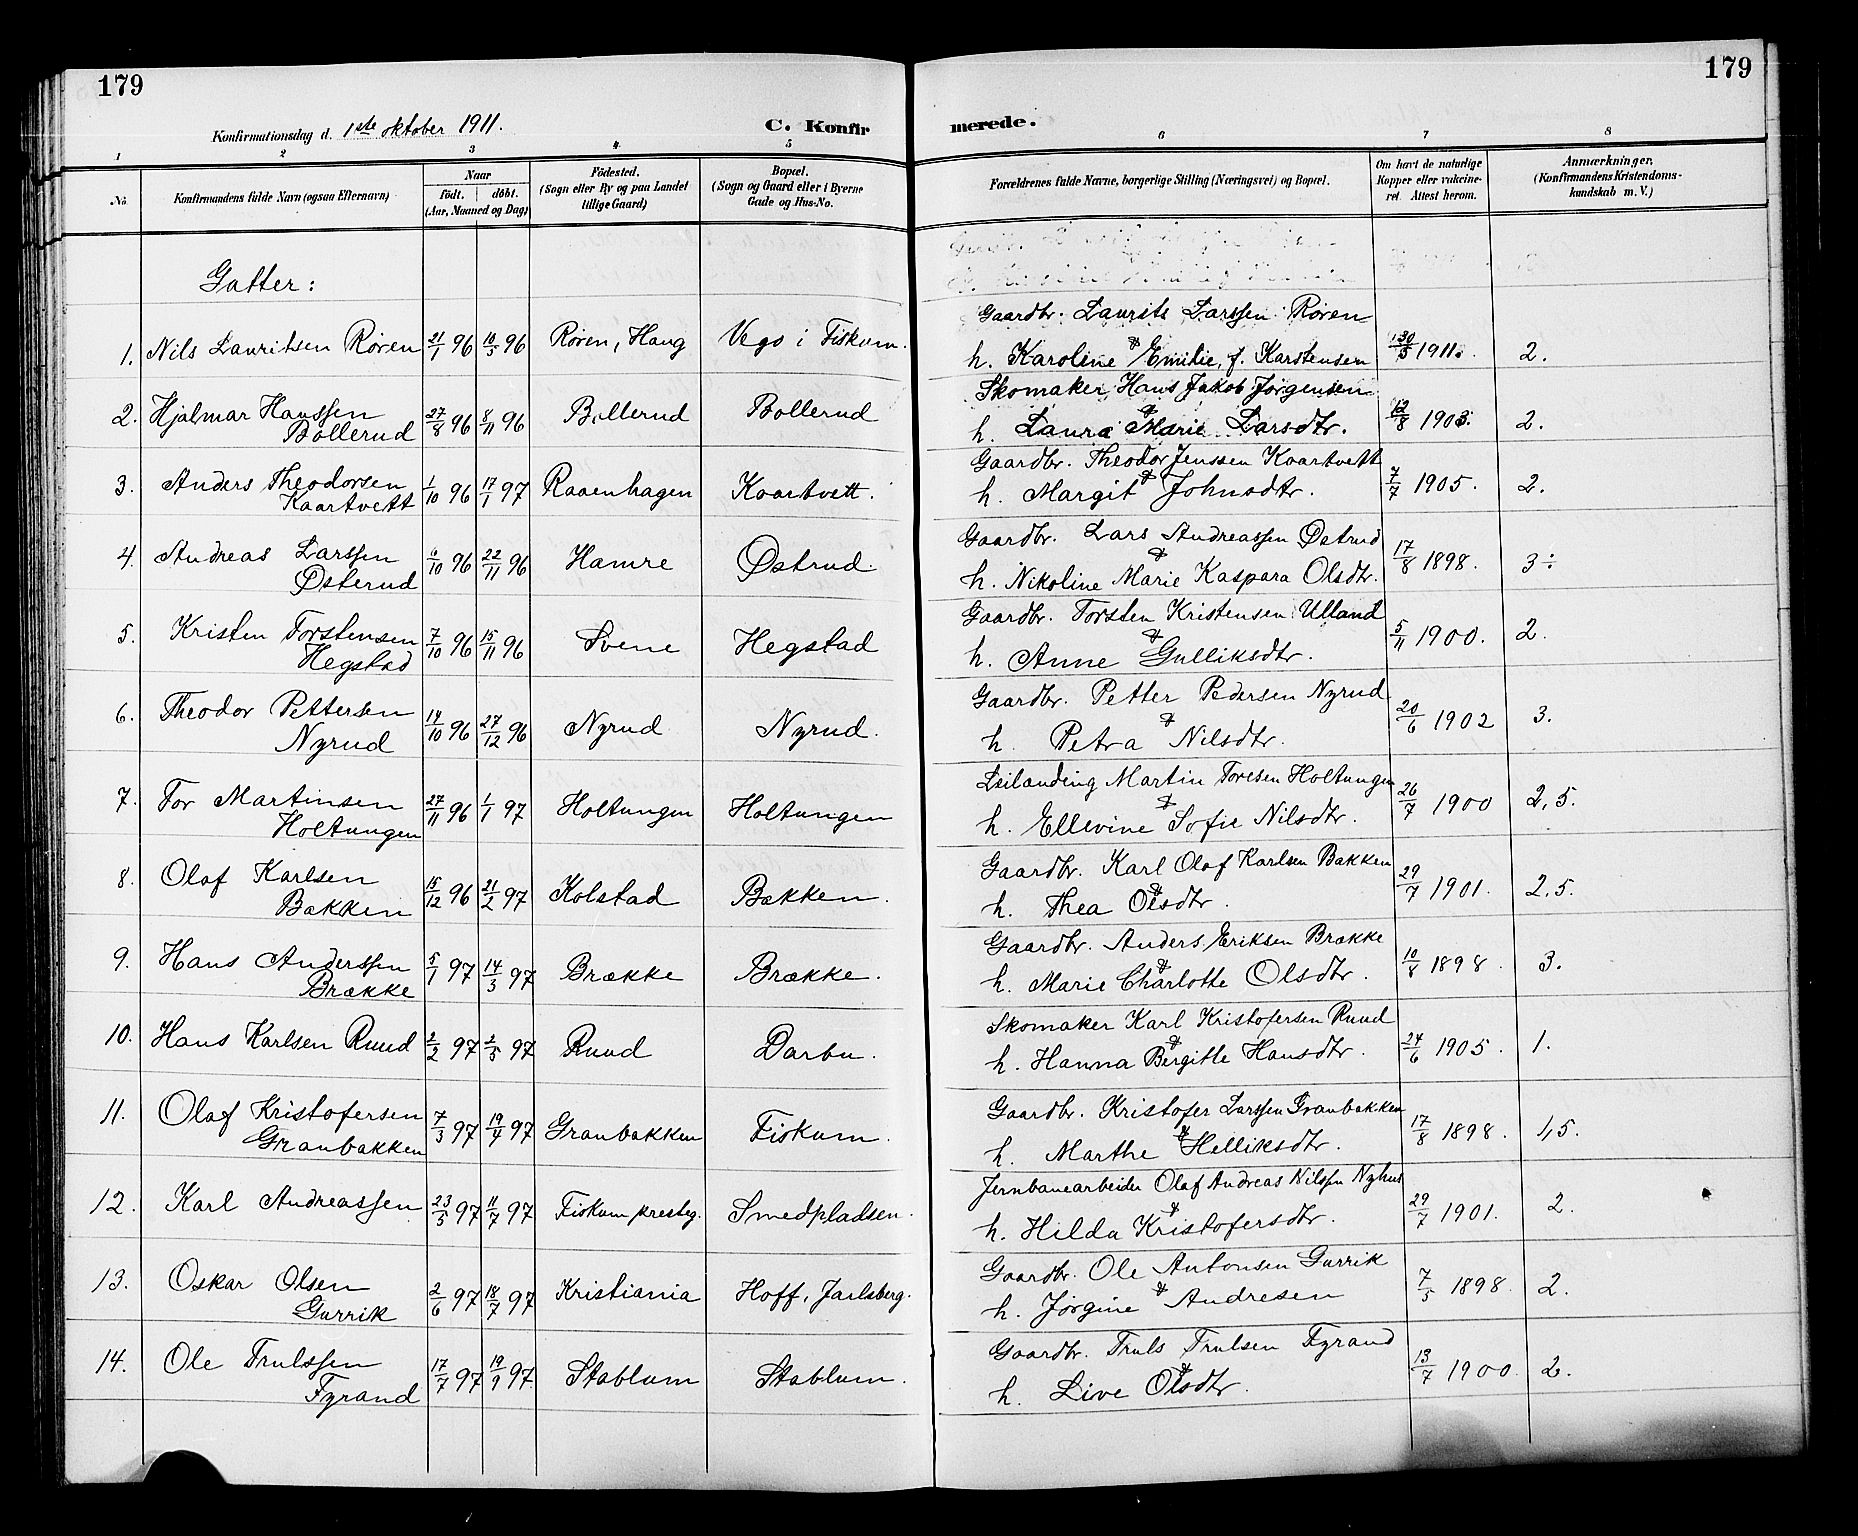 179
179
Konfirmationsdag d. 1ste oktober 1911.
C. Konfirmerede.
1 2 3 4 5 6 7 8
No. Konfirmandens fulde Navn (ogsaa Efternavn) Naar födt. döbt. (Aar, Maaned og Dag) Födested. (Sogn eller By og paa Landet tillige Gaard) Bopæl. (Sogn og Gaard eller i Byerne Gade og Hus-No. Forældrenes fulde Navne, borgerlige Stilling (Næringsvei) og Bopæl. Om havt de naturlige Kopper eller vakcineret. Attest herom. Anmærkninger. (Konfirmandens Kristendomskundskab m. V.)
Gutter:
1. Nils Lauritsen Røren 21/1 96 10/3 96 Røren, Haug Vego i Fiskum. Gaardbr. Laurits Larssen Røren & h. Karoline Emilie, f. Karstensen 30/5 1911. 2.
2. Hjalmar Hanssen Bollerud 27/8 96 8/11 96 Bollerud Bollerud Skomaker Hans Jakob Jørgensen & h. Laura Marie Larsdtr. 12/8 1903. 2.
3. Anders Theodorsen Kaartvett 1/10 96 17/1 97 Raaenhagen Kaartvett. Gaardbr. Theodor Jenssen Kaartvett & h. Margit Johnsdtr. 7/7 1905. 2.
4. Andreas Larssen Østerud 6/10 96 22/11 96 Hamre Østrud. Gaardbr. Lars Andreassen Østrud & h. Nikoline Marie Kaspara Olsdtr. 17/8 1898. 3÷
5. Kristen Torstensen Hegstad 7/10 96 15/11 96 Svene Hegstad Gaardbr. Torsten Kristensen Ulland & h. Anne Gulliksdtr. 5/11 1900. 2.
6. Theodor Pettersen Nyrud 14/10 96 27/12 96 Nyrud Nyrud. Gaardbr. Petter Pedersen Nyrud & h. Petra Nilsdtr. 20/6 1902 3.
7. Tor Martinsen Holtungen 27/11 96 1/1 97 Holtungen Holtungen Leilænding Martin Toresen Holtungen & h. Ellevine Sofie Nilsdtr. 26/7 1900 2,5.
8. Olaf Karlsen Bakken 15/12 96 21/2 97 Kolstad Bakken. Gaardbr. Karl Olaf Karlsen Bakken & h. Thea Olsdtr. 29/7 1901. 2,5.
9. Hans Anderssen Brække 5/1 97 14/3 97 Brække Brække. Gaardbr. Anders Eriksen Brække & h. Marie Charlotte Olsdtr. 10/8 1898. 3.
10. Hans Karlsen Ruud 2/2 97 2/5 97 Ruud Darbu. Skomaker Karl Kristofersen Ruud & h. Hanna Bergitte Hansdtr. 24/6 1905. 1.
11. Olaf Kristofersen Granbakken 7/3 97 19/4 97 Granbakken Fiskum. Gaardbr. Kristofer Larssen Granbakken & h. Marthe Helliksdtr. 17/8 1898. 1,5.
12. Karl Andreassen 23/5 97 11/7 97 Fiskum presteg. Smedpladsen. Jernbanearbeider Olaf Andreas Nilssen Nyhus & h. Hilda Kristofersdtr. 29/7 1901. 2.
13. Oskar Olsen Gurrik 2/6 97 18/7 97 Kristiania Hoff, Jarlsberg. Gaardbr. Ole Antonsen Gurrik & h. Jørgine Andresen 7/5 1898. 2.
14. Ole Trulssen Fyrand 17/7 97 19/9 97. Stablum Stablum. Gaardbr. Truls Trulsen Fyrand & h. Live Olsdtr. 13/7 1900. 2.